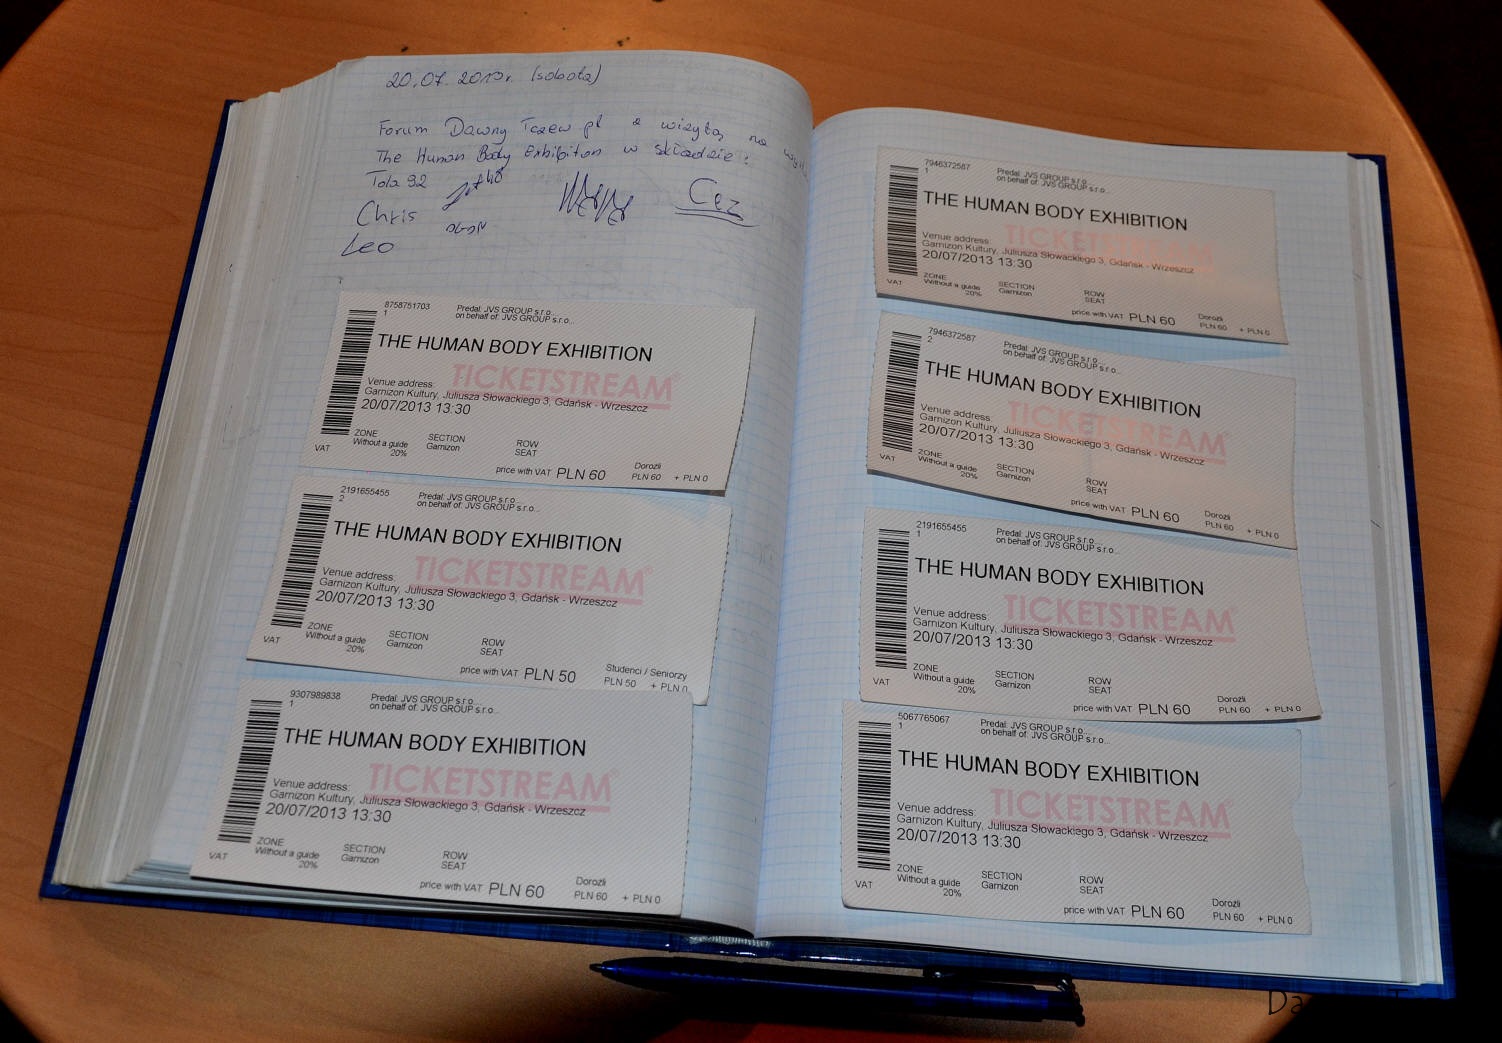 20.07.2013r. (sobota)
Forum Dawny Tczew.pl z wizytą na
The Human Body Exhibition w składzie:
Tola 92
Chris
Cez
Leo
8758751703
1
Predal: JVS GROUP s.r.o...
on behalf of: JVS GROUP s.r.o...
THE HUMAN BODY EXHIBITION
TICKETSTREAM®
Venue address:
Garnizon Kultury, Juliusza Słowackiego 3, Gdańsk - Wrzeszcz
20/07/2013 13:30
ZONE SECTION ROW
Without a guide Garnizon SEAT
VAT 20%
price with VAT PLN 60 Dorośli
PLN 60 + PLN 0
2191655455
2
Predal: JVS GROUP s.r.o...
on behalf of: JVS GROUP s.r.o...
THE HUMAN BODY EXHIBITION
TICKETSTREAM®
Venue address:
Garnizon Kultury, Juliusza Słowackiego 3, Gdańsk - Wrzeszcz
20/07/2013 13:30
ZONE SECTION ROW
Without a guide Garnizon SEAT
VAT 20%
price with VAT PLN 50 Studenci / Seniorzy
PLN 50 + PLN 0
9307989838
1
Predal: JVS GROUP s.r.o...
on behalf of: JVS GROUP s.r.o...
THE HUMAN BODY EXHIBITION
TICKETSTREAM®
Venue address:
Garnizon Kultury, Juliusza Słowackiego 3, Gdańsk - Wrzeszcz
20/07/2013 13:30
ZONE SECTION ROW
Without a guide Garnizon SEAT
VAT 20%
price with VAT PLN 60 Dorośli
PLN 60 + PLN 0
7946372587
1
Predal: JVS GROUP s.r.o...
on behalf of: JVS GROUP s.r.o...
THE HUMAN BODY EXHIBITION
TICKETSTREAM
Venue address:
Garnizon Kultury, Juliusza Słowackiego 3, Gdańsk - Wrzeszcz
20/07/2013 13:30
ZONE SECTION ROW
Without a guide Garnizon SEAT
VAT 20%
price with VAT PLN 60 Dorośli
PLN 60 + PLN 0
7946372587
2
Predal: JVS GROUP s.r.o...
on behalf of: JVS GROUP s.r.o...
THE HUMAN BODY EXHIBITION
TICKETSTREAM®
Venue address:
Garnizon Kultury, Juliusza Słowackiego 3, Gdańsk - Wrzeszcz
20/07/2013 13:30
ZONE SECTION ROW
Without a guide Garnizon SEAT
VAT 20%
price with VAT PLN 60 Dorośli
PLN 60 + PLN 0
2191655455
1
Predal: JVS GROUP s.r.o...
on behalf of: JVS GROUP s.r.o...
THE HUMAN BODY EXHIBITION
TICKETSTREAM®
Venue address:
Garnizon Kultury, Juliusza Słowackiego 3, Gdańsk - Wrzeszcz
20/07/2013 13:30
ZONE SECTION ROW
Without a guide Garnizon SEAT
VAT 20%
price with VAT PLN 60 Dorośli
PLN 60 + PLN 0
5067765067
1
Predal: JVS GROUP s.r.o...
on behalf of: JVS GROUP s.r.o...
THE HUMAN BODY EXHIBITION
TICKETSTREAM®
Venue address:
Garnizon Kultury, Juliusza Słowackiego 3, Gdańsk - Wrzeszcz
20/07/2013 13:30
ZONE SECTION ROW
Without a guide Garnizon SEAT
VAT 20%
price with VAT PLN 60 Dorośli
PLN 60 + PLN 0